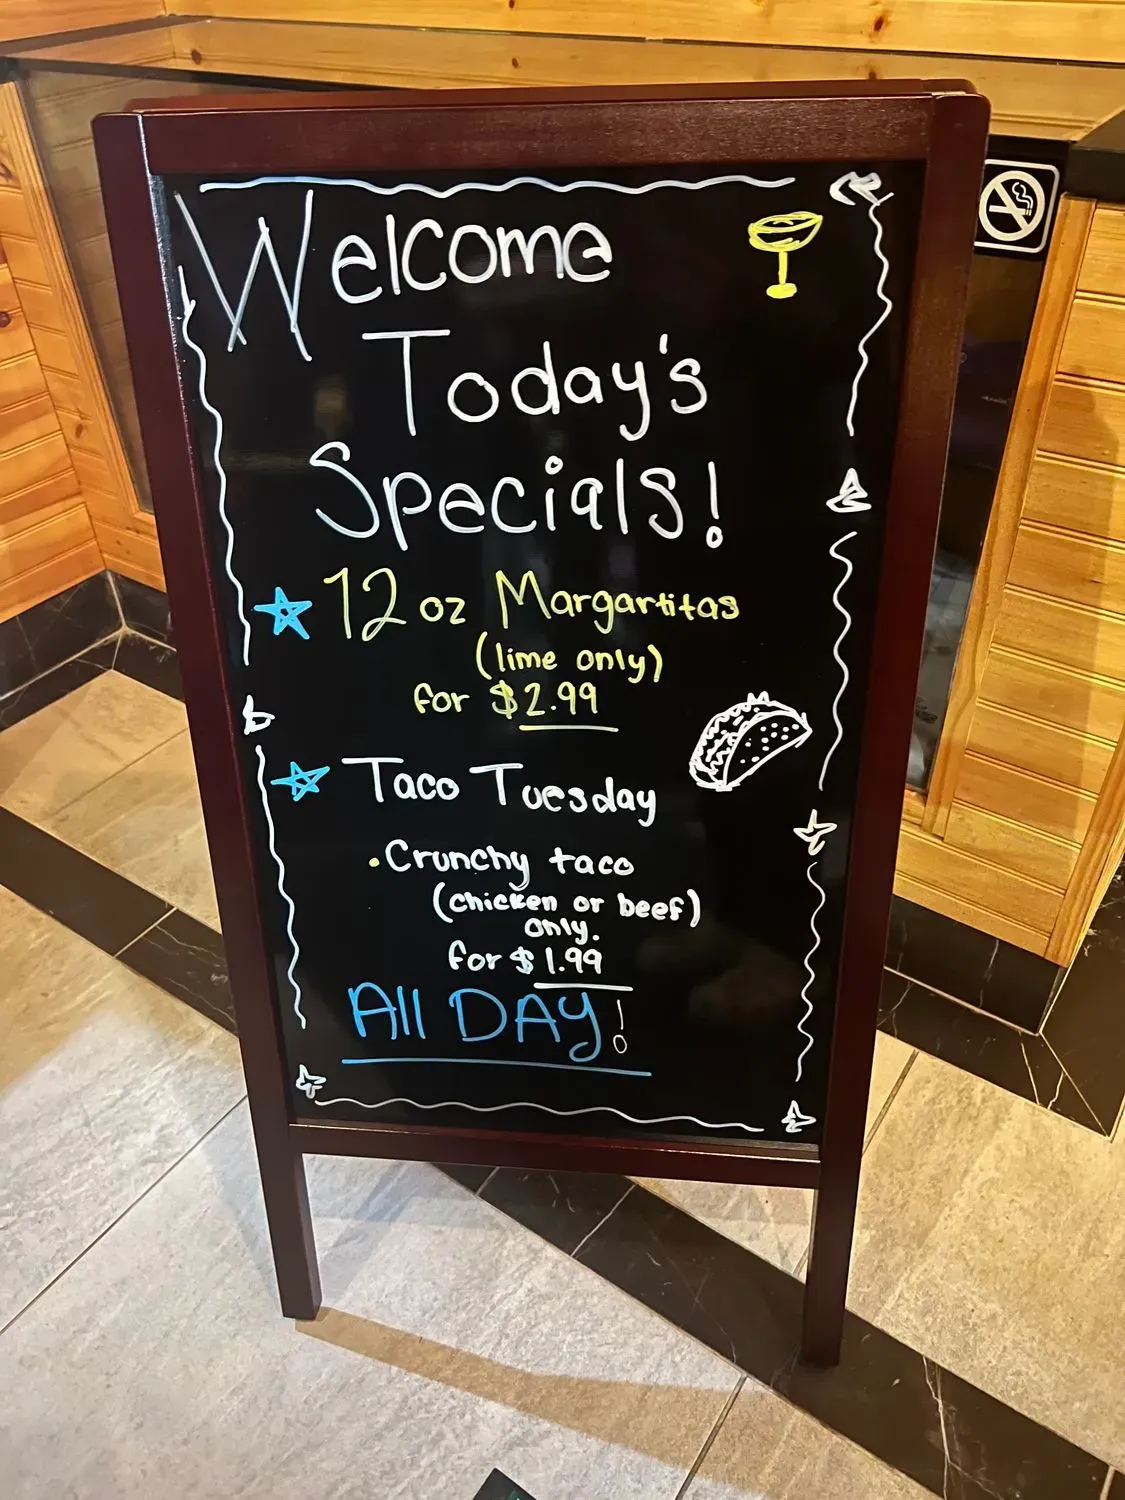 Welcome
Today's
Specials!
12 oz Margartitas
(lime only)
for $2.99
Taco Tuesday
•Crunchy taco
(chicken or beef)
only.
for $1.99
All DAY!